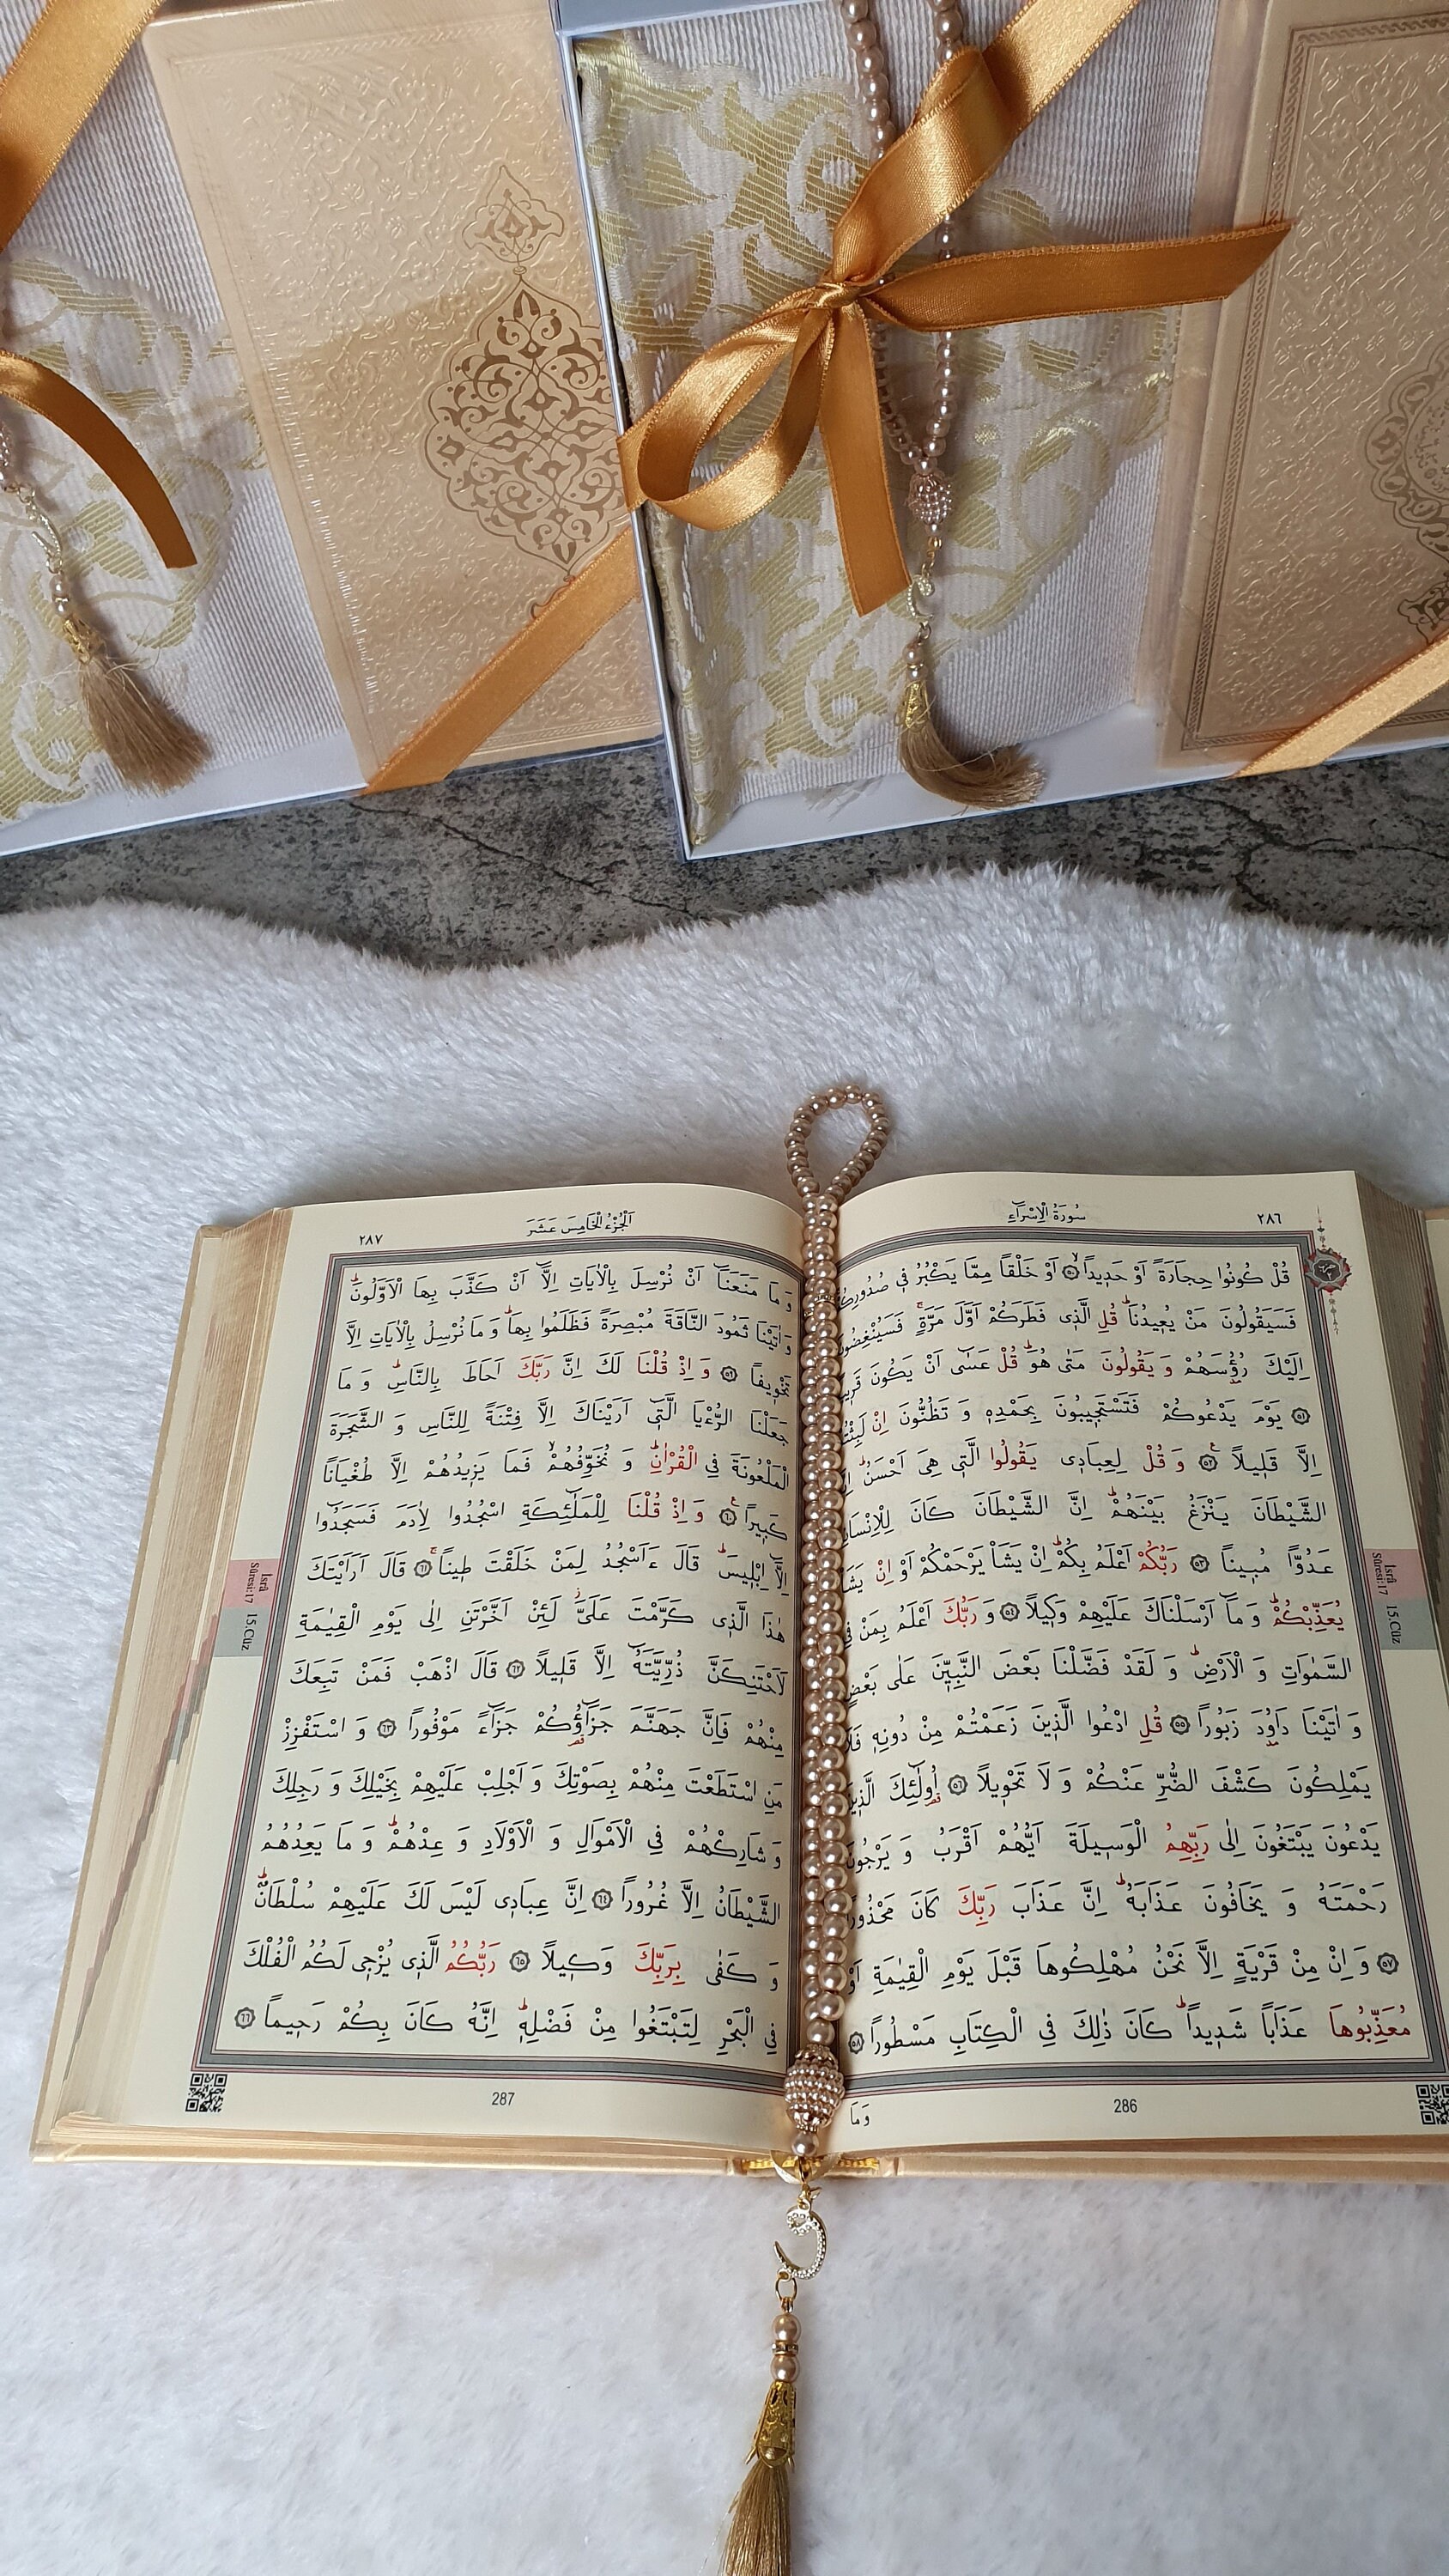 ٢٨٦
سُورَةُ الْاِسْرَاءِ
قُلْ كُونُوا حِجَارَةً اَوْ حَدٖيداًۙ ﴿٥٠﴾ اَوْ خَلْقاً مِمَّا يَكْبُرُ فٖي
فَسَيَقُولُونَ مَنْ يُعٖيدُنَاۜ قُلِ الَّذٖى فَطَرَكُمْ اَوَّلَ مَرَّةٍۚ
اِلَيْكَ رُؤُسَهُمْ وَ يَقُولُونَ مَتٰى هُوَۜ قُلْ عَسٰٓى اَنْ يَكُونَ
﴿٥١﴾ يَوْمَ يَدْعُوكُمْ فَتَسْتَجٖيبُونَ بِحَمْدِهٖ وَ تَظُنُّونَ اِنْ
اِلَّا قَلٖيلاًࣖ ﴿٥٢﴾ وَ قُلْ لِعِبَادٖى يَقُولُوا الَّتٖى هِىَ اَحْسَنُۜ
الشَّيْطَانَ يَنْزَغُ بَيْنَهُمْۜ اِنَّ الشَّيْطَانَ كَانَ
عَدُوًّا مُبٖيناً ﴿٥٣﴾ رَبُّكُمْ اَعْلَمُ بِكُمْۜ اِنْ يَشَأْ يَرْحَمْكُمْ اَوْ اِنْ
يُعَذِّبْكُمْۜ وَ مَٓا اَرْسَلْنَاكَ عَلَيْهِمْ وَكٖيلاً ﴿٥٤﴾ وَ رَبُّكَ اَعْلَمُ بِمَنْ
السَّمٰوَاتِ وَ الْاَرْضِۜ وَ لَقَدْ فَضَّلْنَا بَعْضَ النَّبِيّٖنَ عَلٰى بَعْضٍ
وَ اٰتَيْنَا دَاوُ۫دَ زَبُوراً ﴿٥٥﴾ قُلِ ادْعُوا الَّذٖينَ زَعَمْتُمْ مِنْ دُونِهٖ
يَمْلِكُونَ كَشْفَ الضُّرِّ عَنْكُمْ وَ لَا تَحْوٖيلاً ﴿٥٦﴾ اُو۬لٰٓئِكَ
يَدْعُونَ يَبْتَغُونَ اِلٰى رَبِّهِمُ الْوَسٖيلَةَ اَيُّهُمْ اَقْرَبُ وَ يَرْجُونَ
رَحْمَتَهُ وَ يَخَافُونَ عَذَابَهُۜ اِنَّ عَذَابَ رَبِّكَ كَانَ
﴿٥٧﴾ وَ اِنْ مِنْ قَرْيَةٍ اِلَّا نَحْنُ مُهْلِكُوهَا قَبْلَ يَوْمِ الْقِيٰمَةِ اَوْ
مُعَذِّبُوهَا عَذَاباً شَدٖيداًۜ كَانَ ذٰلِكَ فِى الْكِتَابِ مَسْطُوراً ﴿٥٨﴾
وَمَا
286
İsrâ
Sûresi:17
15.Cüz
اَلْجُزْءُ الْخَامِسَ عَشَرَ
٢٨٧
وَ مَا مَنَعَنَٓا اَنْ نُرْسِلَ بِالْاٰيَاتِ اِلَّٓا اَنْ كَذَّبَ بِهَا الْاَوَّلُونَۜ
وَ اٰتَيْنَا ثَمُودَ النَّاقَةَ مُبْصِرَةً فَظَلَمُوا بِهَاۜ وَ مَا نُرْسِلُ بِالْاٰيَاتِ اِلَّا
تَخْوٖيفاً ﴿٥٩﴾ وَ اِذْ قُلْنَا لَكَ اِنَّ رَبَّكَ اَحَاطَ بِالنَّاسِۜ وَ مَا
جَعَلْنَا الرُّءْيَا الَّتٖٓى اَرَيْنَاكَ اِلَّا فِتْنَةً لِلنَّاسِ وَ الشَّجَرَةَ
الْمَلْعُونَةَ فِى الْقُرْاٰنِۜ وَ نُخَوِّفُهُمْۙ فَمَا يَزٖيدُهُمْ اِلَّا طُغْيَاناً
كَبٖيراًࣖ ﴿٦٠﴾ وَ اِذْ قُلْنَا لِلْمَلٰٓئِكَةِ اسْجُدُوا لِاٰدَمَ فَسَجَدُٓوا
اِلَّٓا اِبْلٖيسَۜ قَالَ ءَاَسْجُدُ لِمَنْ خَلَقْتَ طٖيناًۚ ﴿٦١﴾ قَالَ اَرَاَيْتَكَ
هٰذَا الَّذٖى كَرَّمْتَ عَلَىَّۘ لَئِنْ اَخَّرْتَنِ اِلٰى يَوْمِ الْقِيٰمَةِ
لَاَحْتَنِكَنَّ ذُرِّيَّتَهُٓ اِلَّا قَلٖيلاً ﴿٦٢﴾ قَالَ اذْهَبْ فَمَنْ تَبِعَكَ
مِنْهُمْ فَاِنَّ جَهَنَّمَ جَزَٓاؤُ۬كُمْ جَزَٓاءً مَوْفُوراً ﴿٦٣﴾ وَ اسْتَفْزِزْ
مَنِ اسْتَطَعْتَ مِنْهُمْ بِصَوْتِكَ وَ اَجْلِبْ عَلَيْهِمْ بِخَيْلِكَ وَ رَجِلِكَ
وَ شَارِكْهُمْ فِى الْاَمْوَالِ وَ الْاَوْلَادِ وَ عِدْهُمْۜ وَ مَا يَعِدُهُمُ
الشَّيْطَانُ اِلَّا غُرُوراً ﴿٦٤﴾ اِنَّ عِبَادٖى لَيْسَ لَكَ عَلَيْهِمْ سُلْطَانٌۜ
وَ كَفٰى بِرَبِّكَ وَكٖيلاً ﴿٦٥﴾ رَبُّكُمُ الَّذٖى يُزْجٖى لَكُمُ الْفُلْكَ
فِى الْبَحْرِ لِتَبْتَغُوا مِنْ فَضْلِهٖۜ اِنَّهُ كَانَ بِكُمْ رَحٖيماً ﴿٦٦﴾
287
İsrâ
Sûresi:17
15.Cüz